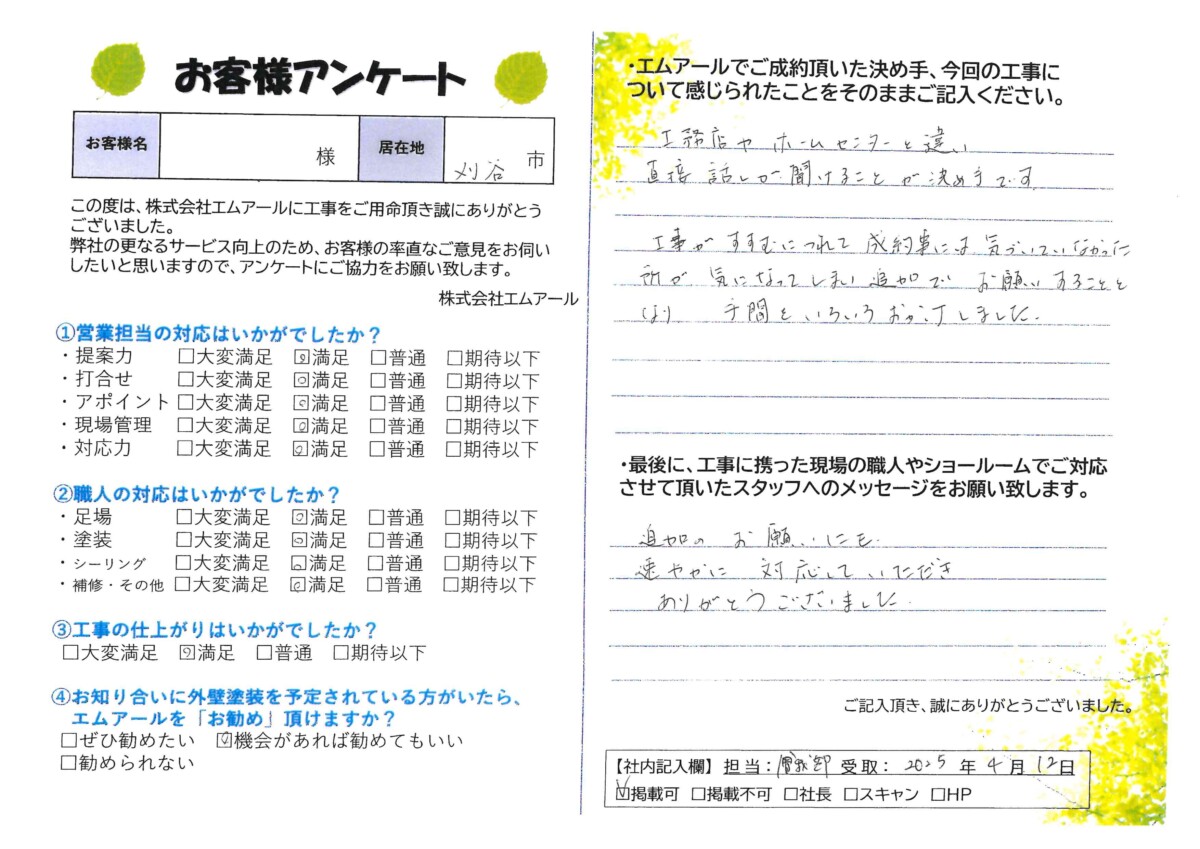 お客様アンケート
お客様名 様 居在地 刈谷 市
この度は、株式会社エムアールに工事をご用命頂き誠にありがとう
ございました。
弊社の更なるサービス向上のため、お客様の率直なご意見をお伺い
したいと思いますので、アンケートにご協力をお願い致します。
株式会社エムアール
①営業担当の対応はいかがでしたか？
・提案力 □大変満足 ☑満足 □普通 □期待以下
・打合せ □大変満足 ☑満足 □普通 □期待以下
・アポイント □大変満足 ☑満足 □普通 □期待以下
・現場管理 □大変満足 ☑満足 □普通 □期待以下
・対応力 □大変満足 ☑満足 □普通 □期待以下
②職人の対応はいかがでしたか？
・足場 □大変満足 ☑満足 □普通 □期待以下
・塗装 □大変満足 ☑満足 □普通 □期待以下
・シーリング □大変満足 ☑満足 □普通 □期待以下
・補修・その他 □大変満足 ☑満足 □普通 □期待以下
③工事の仕上がりはいかがでしたか？
□大変満足 ☑満足 □普通 □期待以下
④お知り合いに外壁塗装を予定されている方がいたら、
エムアールを「お勧め」頂けますか？
□ぜひ勧めたい ☑機会があれば勧めてもいい
□勧められない
・エムアールでご成約頂いた決め手、今回の工事に
ついて感じられたことをそのままご記入ください。
工務店やホームセンターと違い
直接話しが聞けることが決め手です
工事がすすむにつれて成約事には気づいていなかった
所が気になってしまい追加でお願いすることと
なり 手間をいろいろおかけしました.
・最後に、工事に携った現場の職人やショールームでご対応
させて頂いたスタッフへのメッセージをお願い致します。
追加のお願いにも.
速やかに対応していただき
ありがとうございました.
ご記入頂き、誠にありがとうございました。
【社内記入欄】担当： 受取： 2025 年 4 月 12日
☑掲載可 □掲載不可 □社長 □スキャン □HP